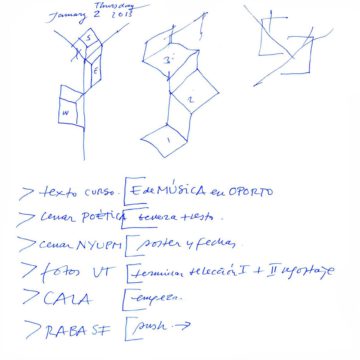 Thursday
January 2 2013
S
E
W
3
2
1
> texto curso. [E de MÚSICA en OPORTO
> cenar POÉTICA [
> cenar NYUPM [poster y fechas.
> fotos UT [terminar selección I + II reportaje
> CALA [empezar.
> RABASF [push →